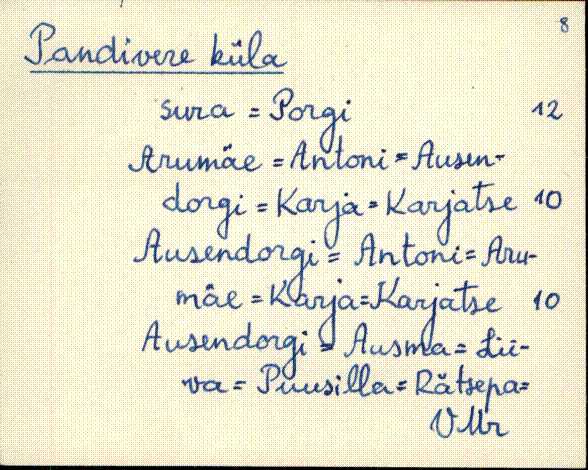 8
Pandivere küla
sura = Porgi 12
Arumäe = Antoni = Ausen-
dorgi = Karja = Karjatse 10
Ausendorgi = Antoni = Aru-
mäe = Karja = Karjatse 10
Ausendorgi = Ausma = Lii-
va = Puusilla = Rätsepa =
VMr